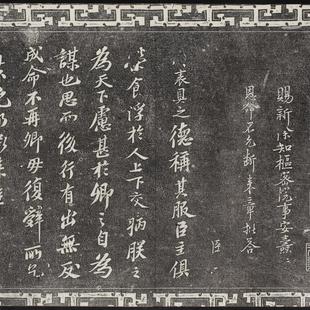 賜新除知樞密院事安燾
恩命不允斷來章批答
臣
省表具之德稱其服臣主俱
榮食浮於人上下交病朕之
為天下慮甚於卿之自為
謀也思而後行有出無反
成命不再卿毋復辭所乞